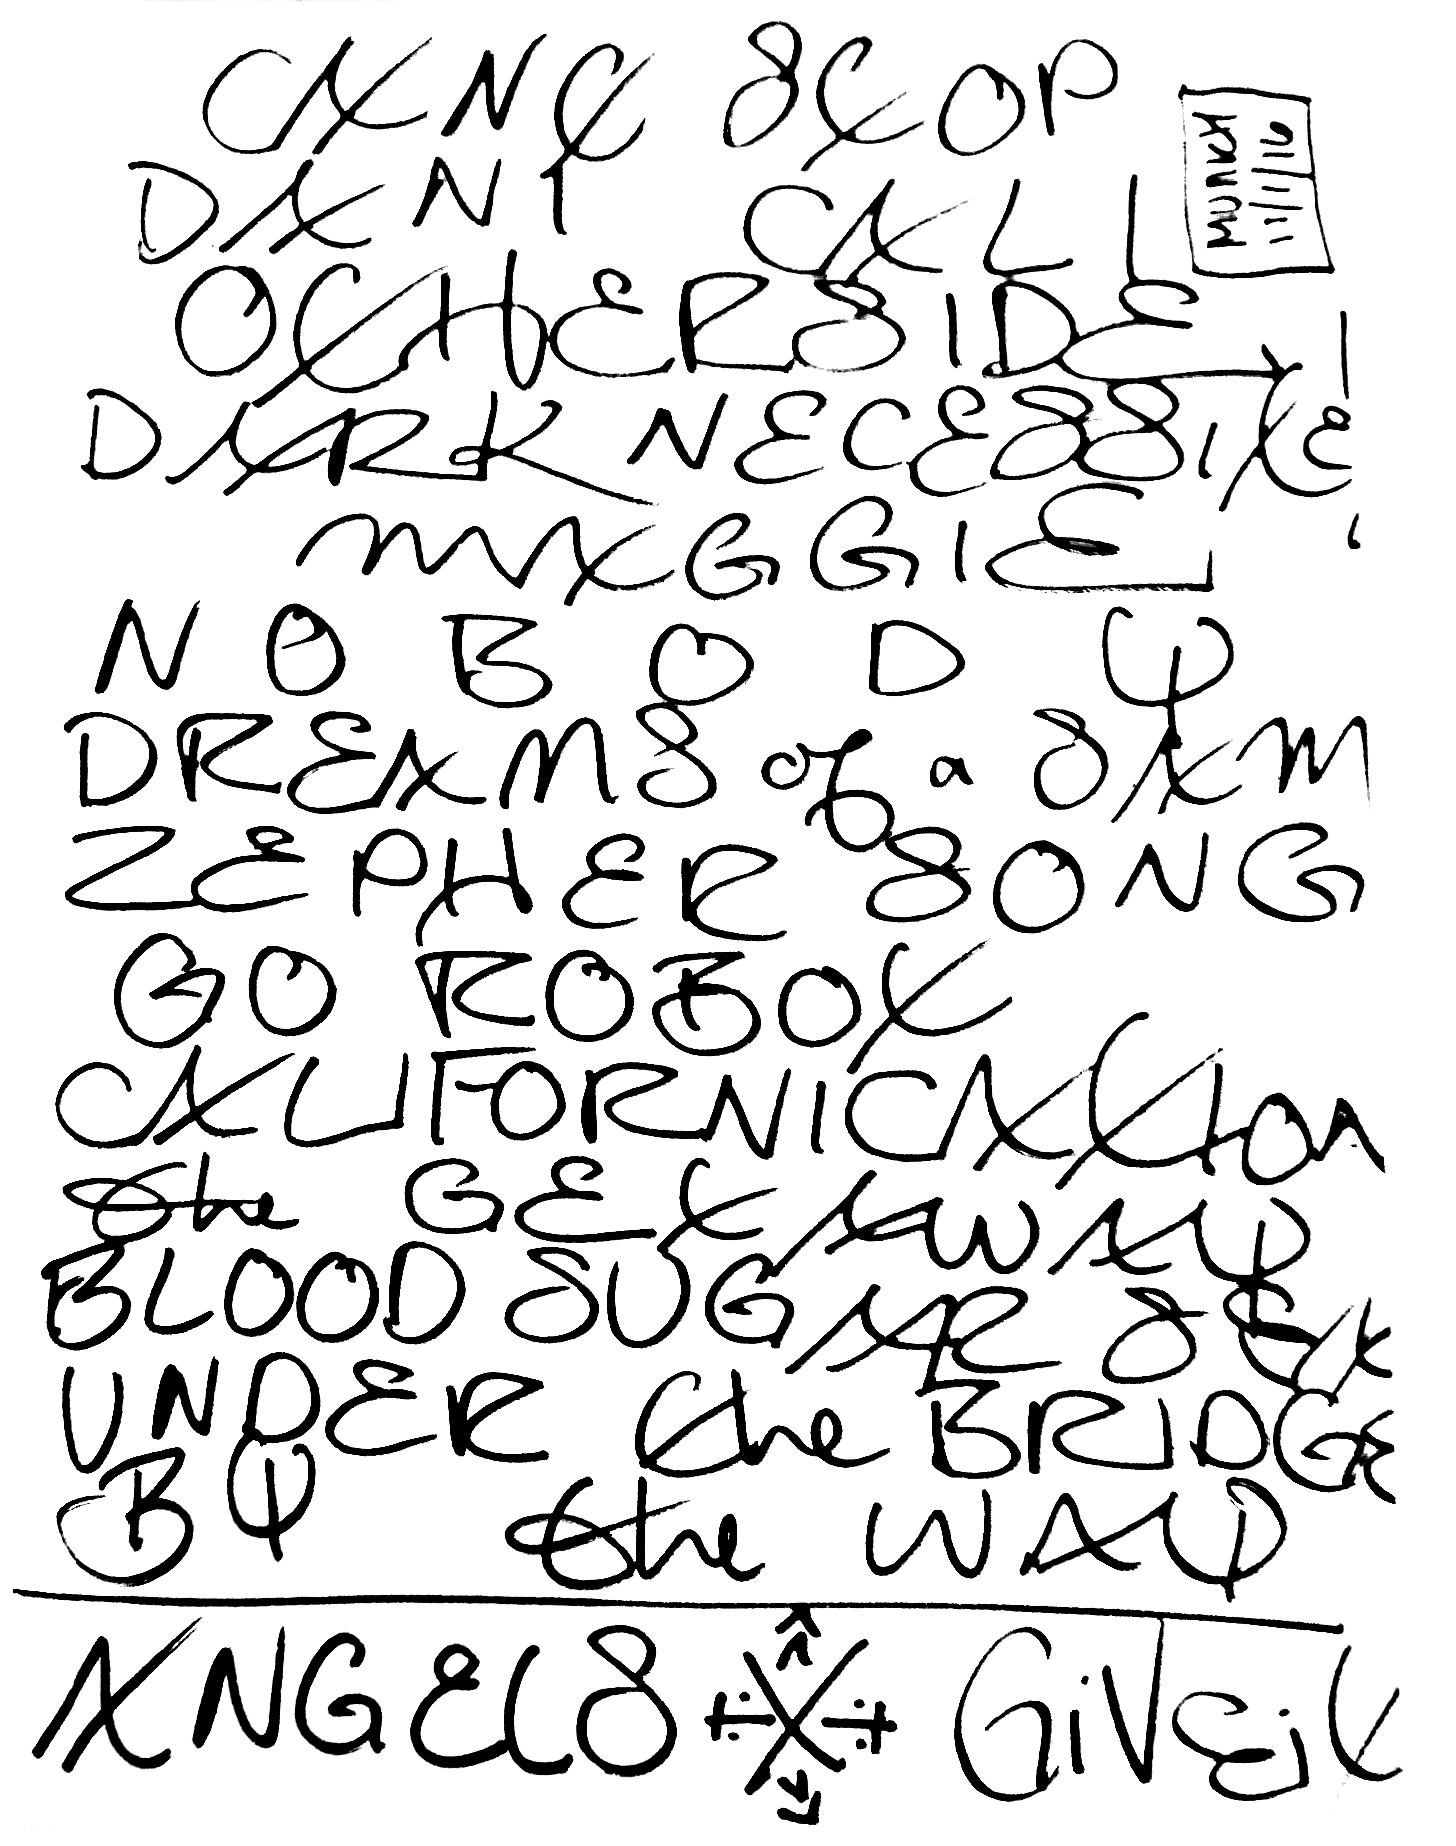 CANT STOP
MUNICH
11/11/16
DANI CALL
OTHERSIDE
DARK NECESSITIE
MAGGIE
NOBODY
DREAMS of a SAM
ZEPHER SONG
GO ROBOT
CALIFORNICATION
the GET AWAY
BLOOD SUGAR SEX
UNDER the BRIDGE
BY the WAY
ANGELS GiVE it